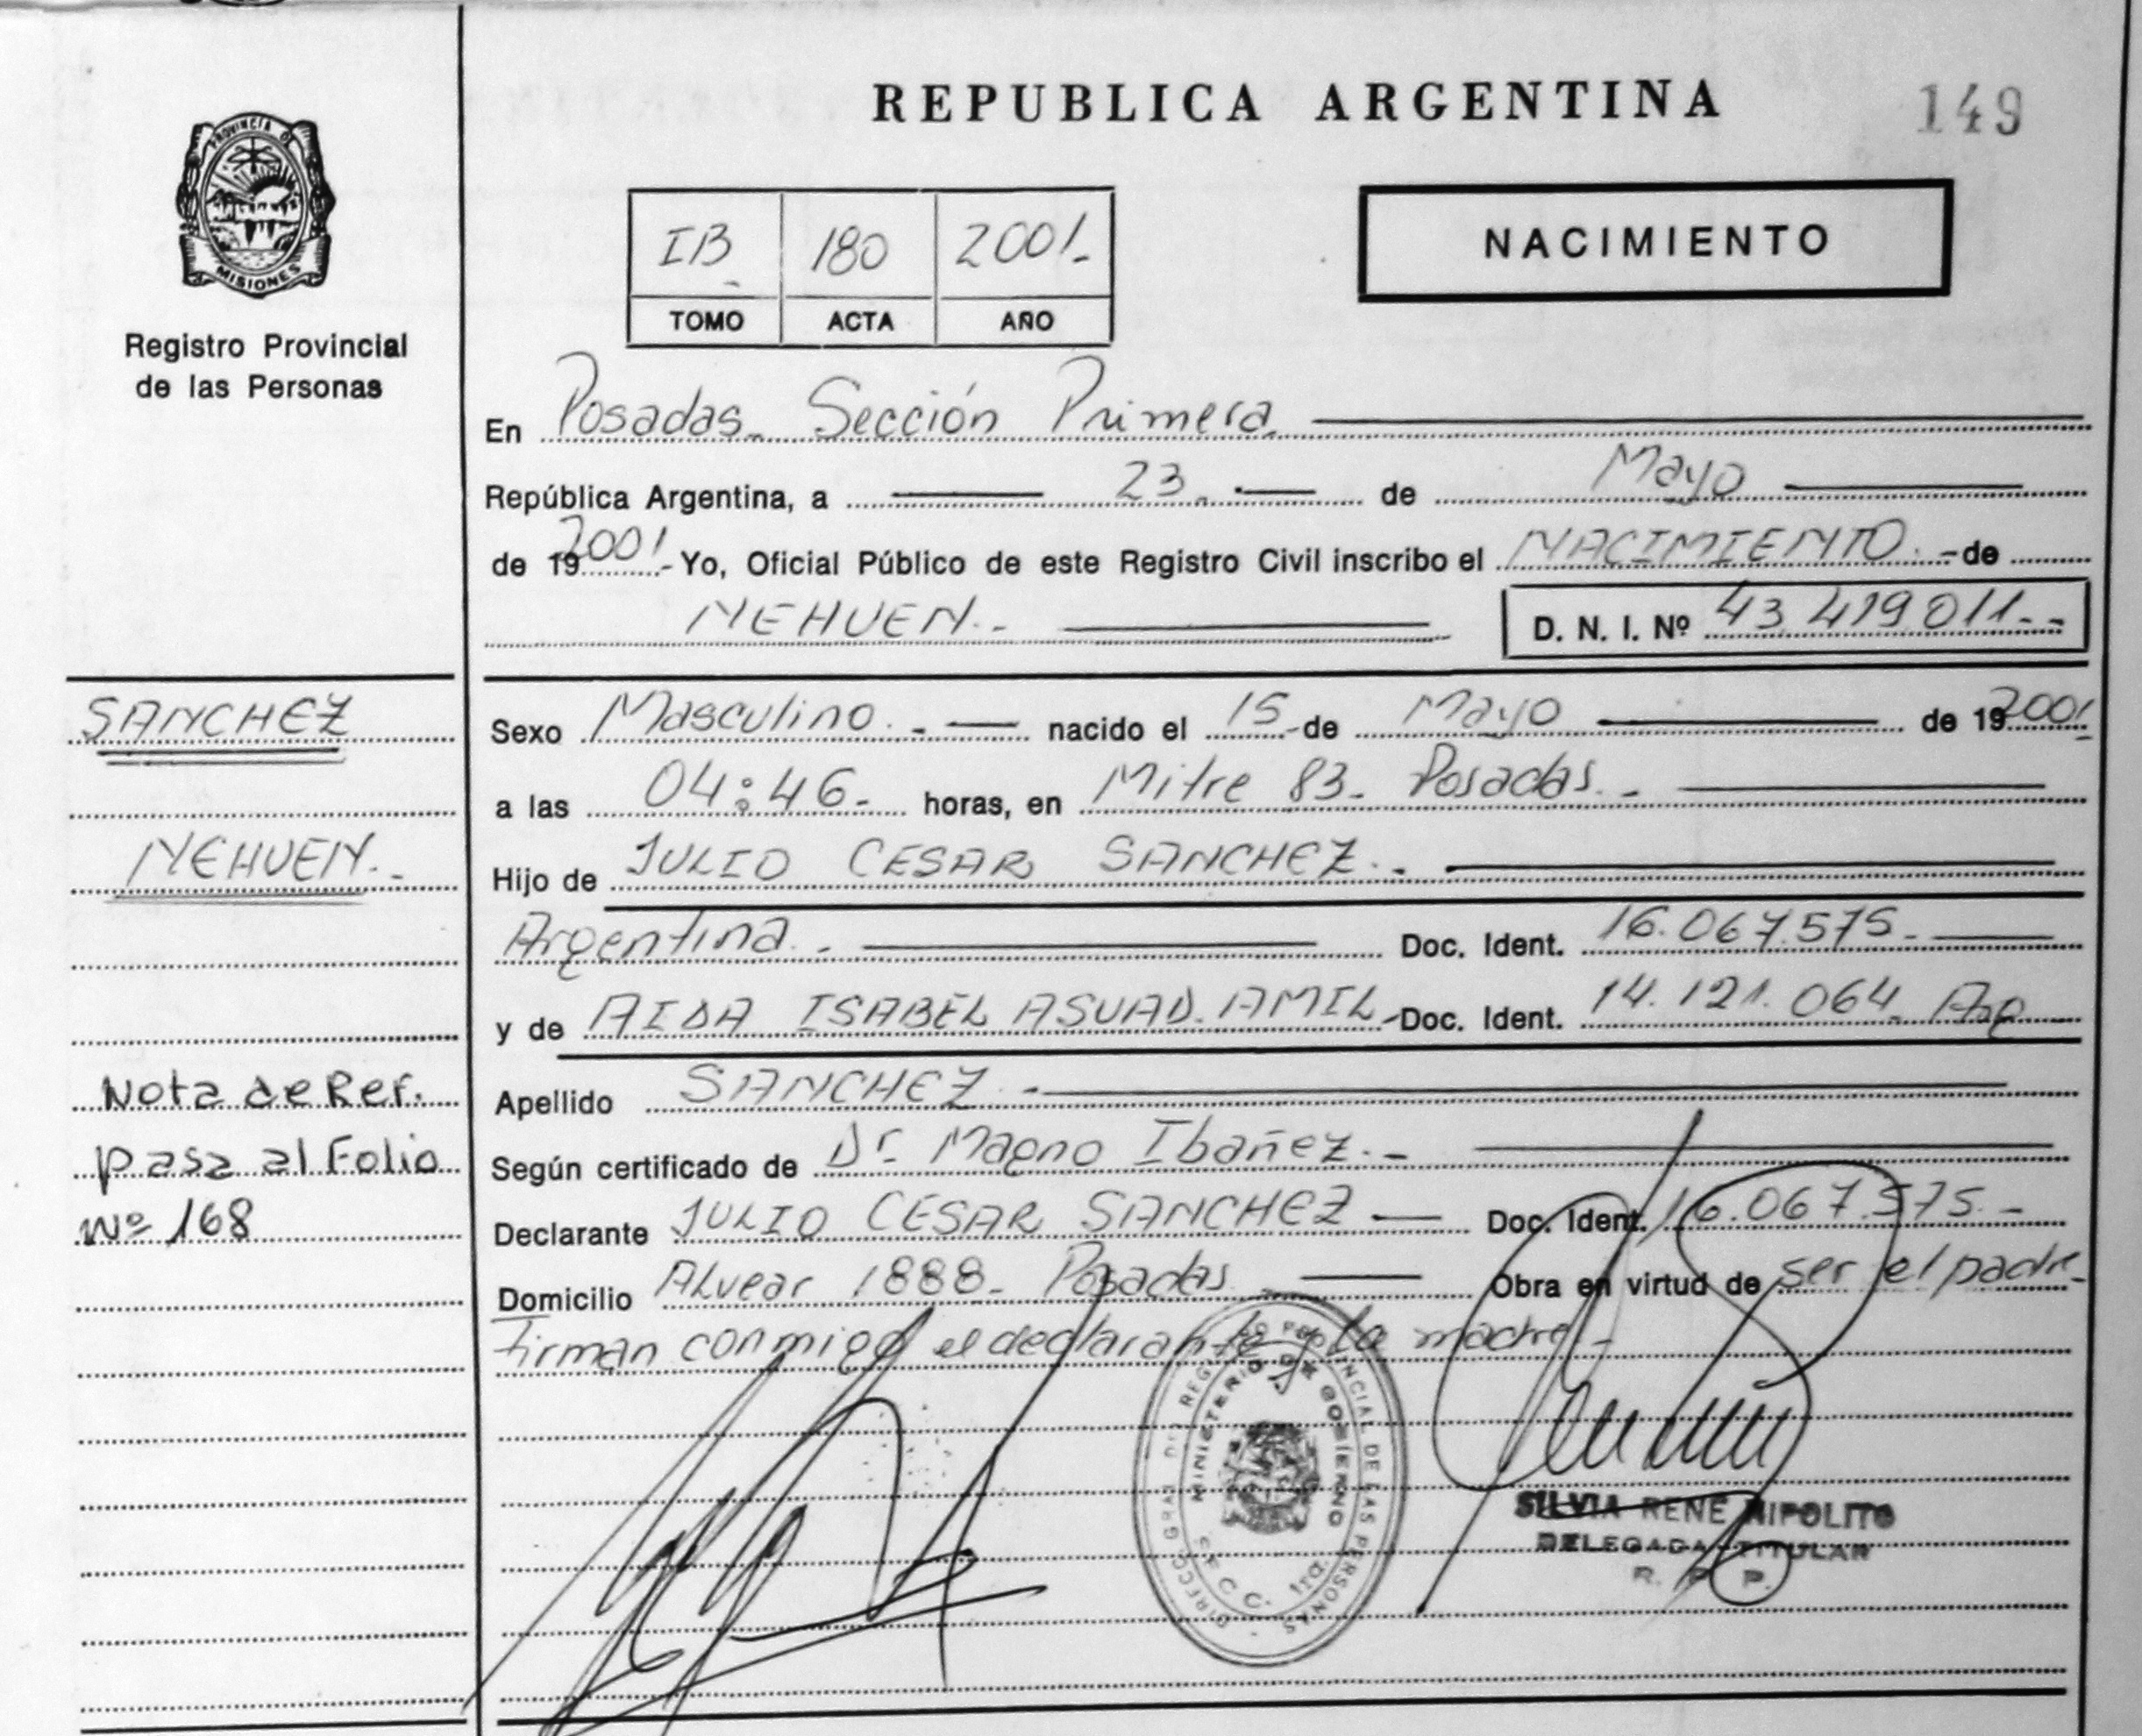 REPUBLICA ARGENTINA
149
PROVINCIA DE
MISIONES
Registro Provincial
de las Personas
IB 180 2001.-
TOMO ACTA AÑO
NACIMIENTO
En Posadas Sección Primera
República Argentina, a 23 de Mayo
de 19 2001.- Yo, Oficial Público de este Registro Civil inscribo el NACIMIENTO.- de
NEHUEN.- D. N. I. Nº 43 419 011--
SANCHEZ
NEHUEN.-
Sexo Masculino.- nacido el 15 de Mayo de 19 2001
a las 04:46.- horas, en Mitre 83- Posadas.-
Hijo de JULIO CESAR SANCHEZ.-
Argentina.- Doc. Ident. 16.067.575-
y de AIDA ISABEL ASUAD AMIL- Doc. Ident. 14.121.064- Arg
Apellido SANCHEZ.-
Según certificado de Dr. Magno Ibañez.-
Declarante JULIO CESAR SANCHEZ Doc. Ident. 16.067.575.-
Domicilio Alvear 1888- Posadas Obra en virtud de ser el padre-
firman conmigo el declarante y la madre-
Nota de Ref.
pasa al Folio
Nº 168
MINISTERIO DE GOBIERNO
SILVIA RENE HIPOLITO
DELEGADA TITULAR